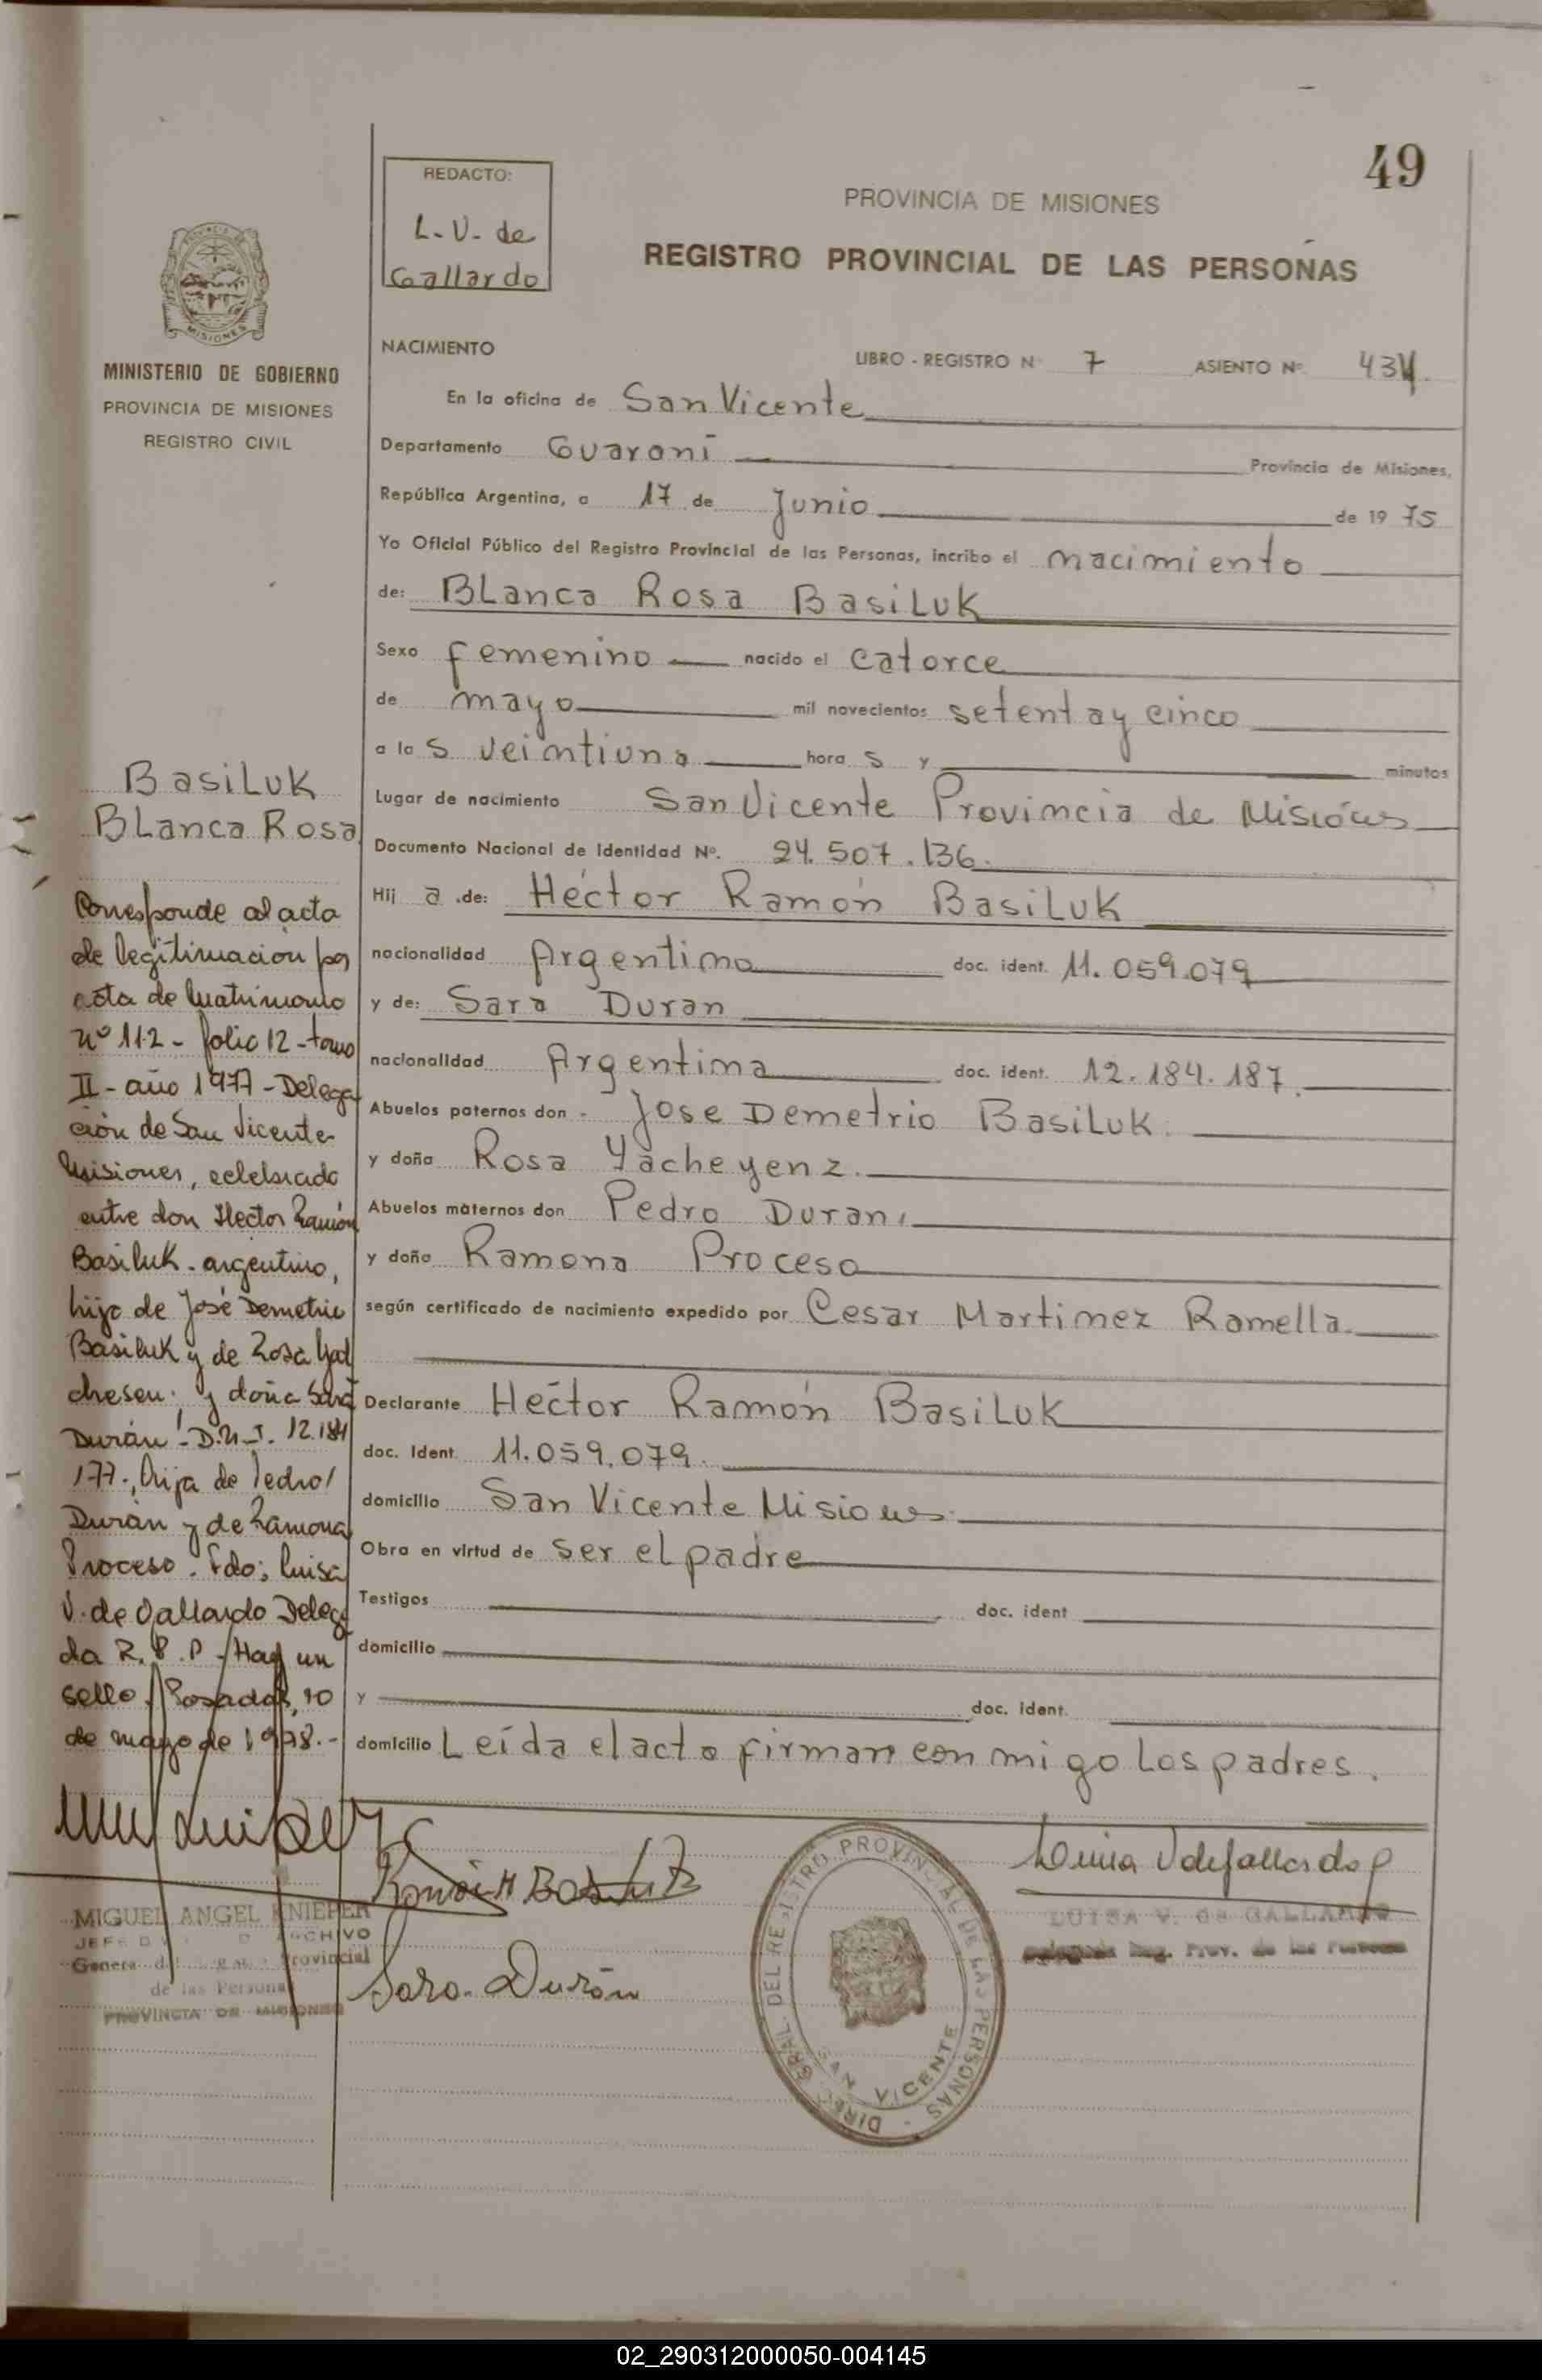 49
REDACTO:
L. V. de
Gallardo
PROVINCIA DE MISIONES
REGISTRO PROVINCIAL DE LAS PERSONAS
MISIONES
MINISTERIO DE GOBIERNO
PROVINCIA DE MISIONES
REGISTRO CIVIL
NACIMIENTO LIBRO - REGISTRO Nº 7 ASIENTO Nº 434.
En la oficina de San Vicente
Departamento Guaraní Provincia de Misiones,
República Argentina, a 17 de Junio de 19 75
Yo Oficial Público del Registro Provincial de las Personas, incribo el nacimiento
de: Blanca Rosa Basiluk
Sexo femenino nacido el catorce
de mayo mil novecientos setenta y cinco
a las veintiuna horas y minutos
Lugar de nacimiento San Vicente Provincia de Misiones
Documento Nacional de Identidad Nº. 24.507.136.
Hija de: Héctor Ramón Basiluk
nacionalidad Argentina doc. ident. 11.059.079
y de: Sara Duran
nacionalidad Argentina doc. ident. 12.184.187.
Abuelos paternos don Jose Demetrio Basiluk.
y doña Rosa Yacheyenz.
Abuelos maternos don Pedro Duran,
y doña Ramona Proceso
según certificado de nacimiento expedido por Cesar Martinez Ramella.
Declarante Héctor Ramón Basiluk
doc. Ident. 11.059.079.
domicilio San Vicente Misiones.
Obra en virtud de ser el padre
Testigos doc. ident
domicilio
y doc. ident.
domicilio Leída el acta firman conmigo los padres.
Basiluk
Blanca Rosa
Corresponde al acta
de legitimación por
acta de matrimonio
nº 112 - folio 12 - tomo
II - año 1977 - Delega
ción de San Vicente
Misiones, celebrado
entre don Hector Ramón
Basiluk - argentino,
hijo de José Demetrio
Basiluk y de Rosa Yat
chesen; y doña Sara
Durán - D.N.I. 12.184
177., hija de Pedro
Durán y de Ramona
Proceso. Fdo: Luisa
V. de Gallardo Delega
da R. P. P - Hay un
sello. Posadas, 10
de mayo de 1978.-
MIGUEL ANGEL KNIEPER
ARCHIVO
Provincial
de las Personas
PROVINCIA DE MISIONES
Sara Durán
DIREC. GRAL. DEL REGISTRO PROVINCIAL DE LAS PERSONAS -
SAN VICENTE
Luisa V de Gallardo
LUISA V. de GALLARDO
Delegada Reg. Prov. de las Personas
02_290312000050-004145